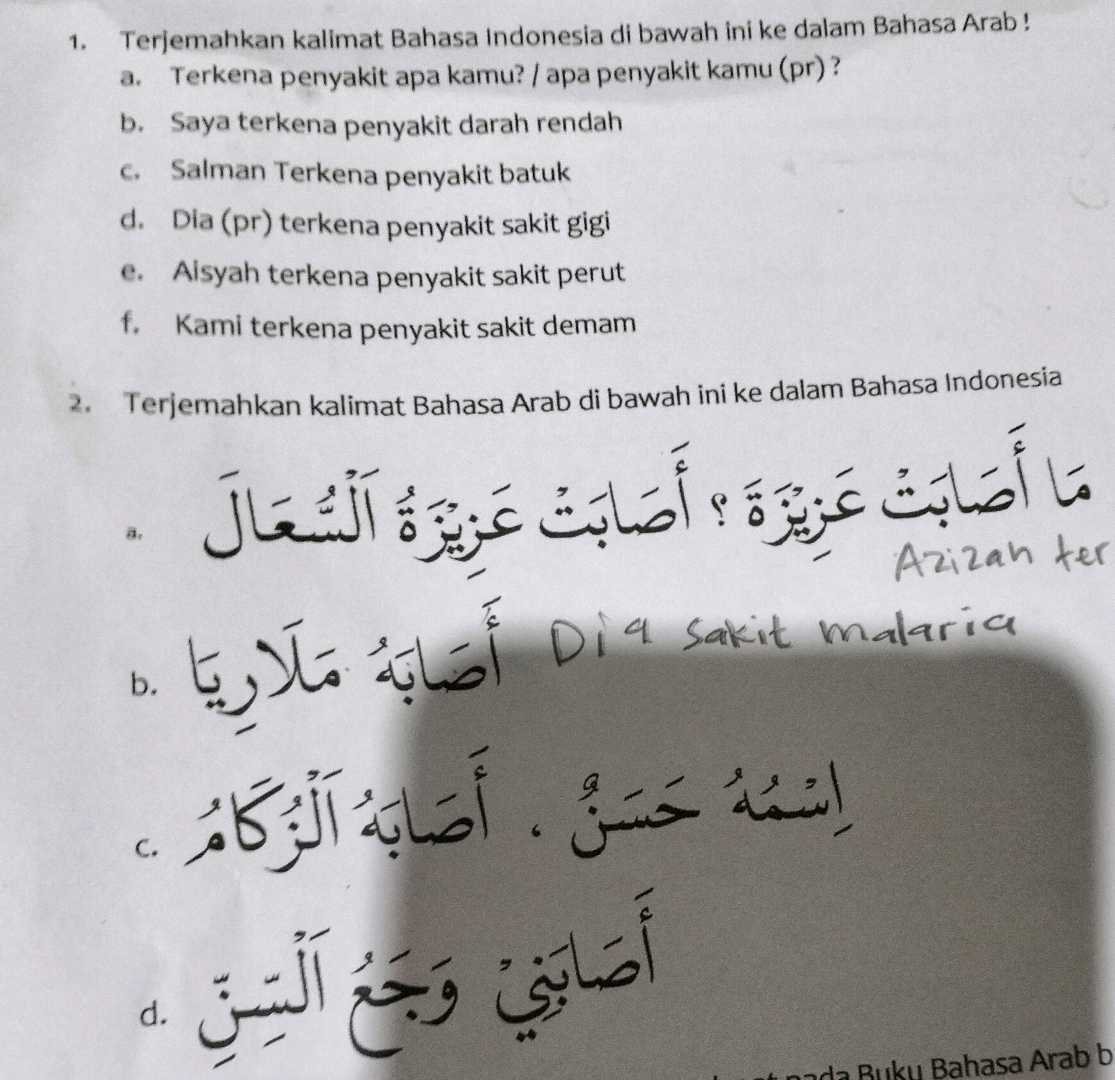 1. Terjemahkan kalimat Bahasa Indonesia di bawah ini ke dalam Bahasa Arab !
a. Terkena penyakit apa kamu? / apa penyakit kamu (pr) ?
b. Saya terkena penyakit darah rendah
c. Salman Terkena penyakit batuk
d. Dia (pr) terkena penyakit sakit gigi
e. Aisyah terkena penyakit sakit perut
f. Kami terkena penyakit sakit demam
2. Terjemahkan kalimat Bahasa Arab di bawah ini ke dalam Bahasa Indonesia
a. مَا أَصَابَتْ عَزِيْزَةَ ؟ أَصَابَتْ عَزِيْزَةُ اَلْسُّعَالَ
Azizah ter
b. أَصَابَهُ مَلَارِيَا Dia sakit malaria
c. اِسْمُهُ حَسَنٌ . أَصَابَهُ اَلْزُكَامُ
d. أَصَابَنِيْ وَجَعُ اَلْسِّنِّ
pada Buku Bahasa Arab b